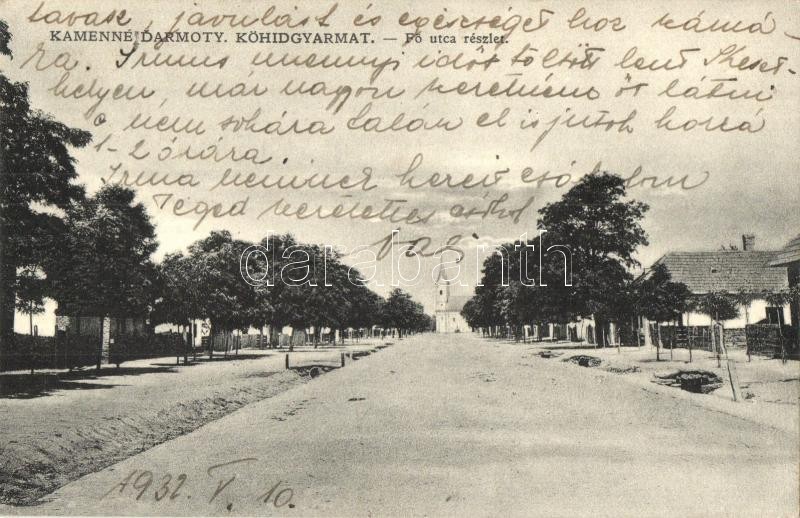 tavasz, javulást és egészséget hoz számá-
KAMENNÉ ĎARMOTY. KÖHIDGYARMAT. — Fő utca részlet.
ra. Irmus mennyi időt töltött lent
helyen, már nagyon szeretném őt látni
nem sokára talán el is jutok hozzá
1-2 órára.
Irma néninek kezeit csókolom
Téged szeretettel csókol
darabanth
1932. V. 10.